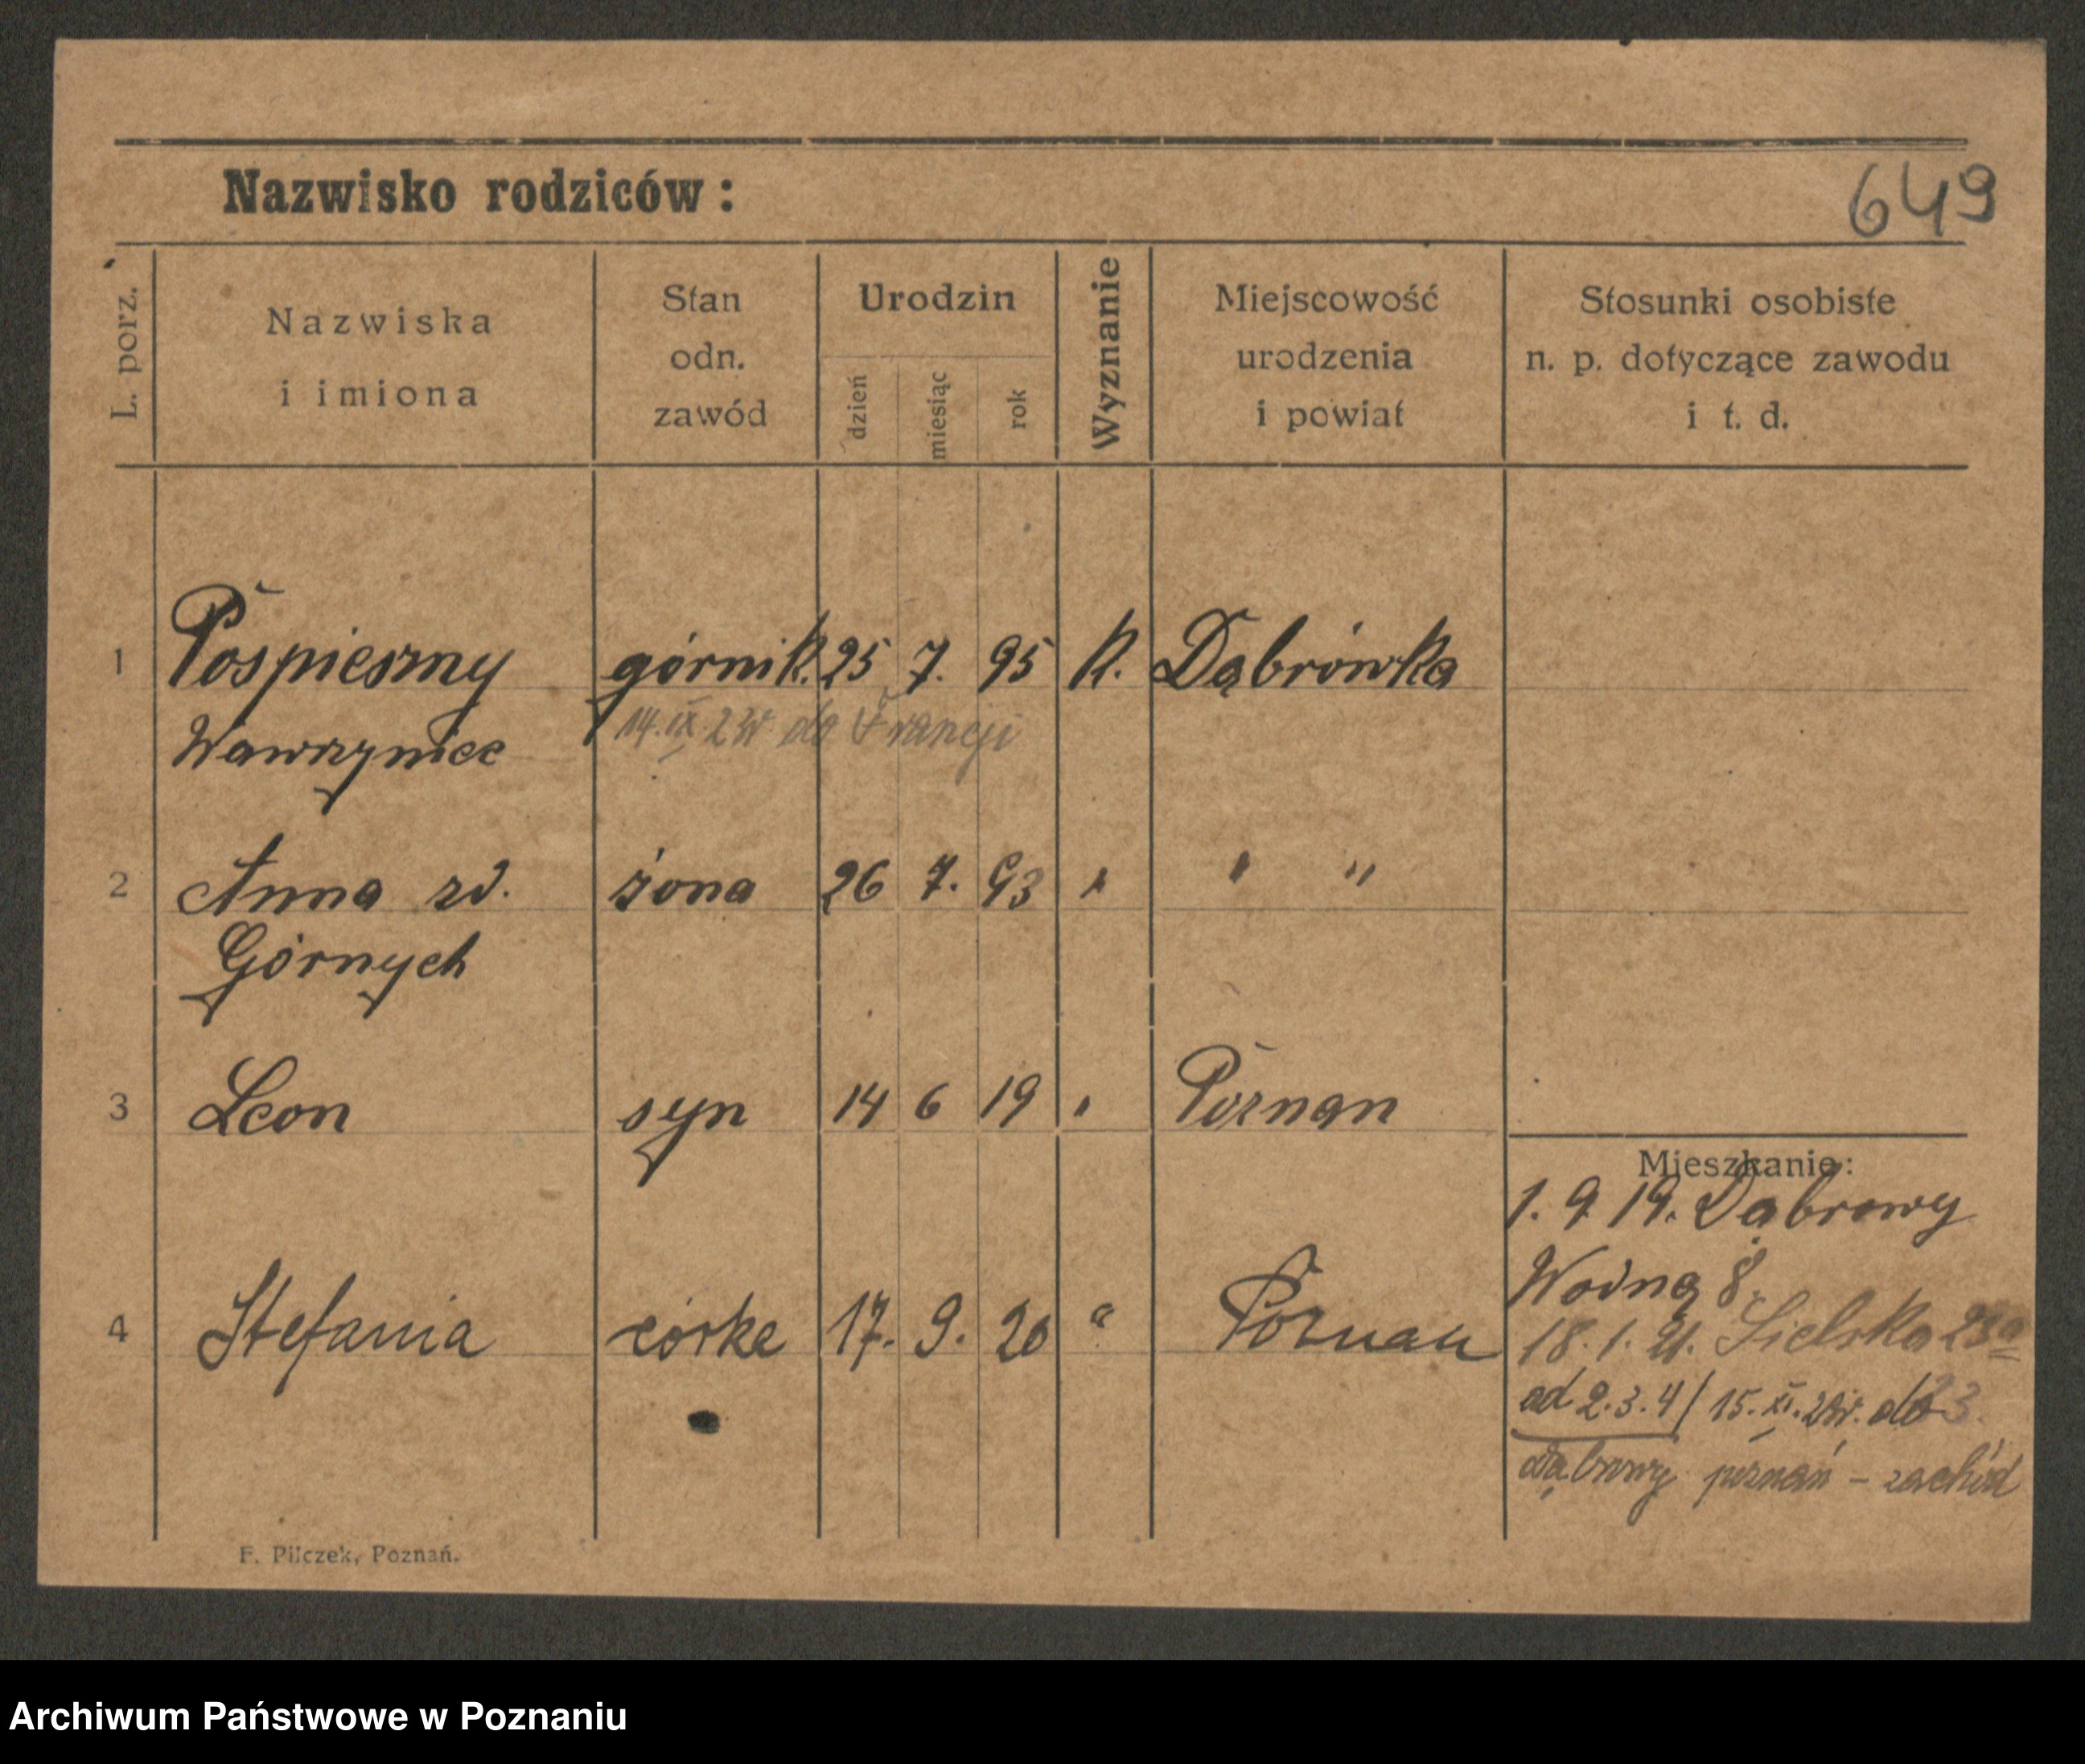 Nazwisko rodziców:
649
L. porz.
Nazwiska
i imiona
Stan
odn.
zawód
Urodzin
dzień
miesiąc
rok
Wyznanie
Miejscowość
urodzenia
i powiat
Stosunki osobiste
n. p. dotyczące zawodu
i t. d.
1 Pospieszny górnik. 25 7. 95 K. Dąbrówka
Wawrzyniec 14. IX. 23r do Francji
2 Anna zd. żona 26 7. 93 " " "
Górnych
3 Leon syn 14 6 19 " Poznan
Mieszkanie:
1. 9 19. Dąbrowy
Wodna 8.
4 Stefania córka 17. 9. 20 " Poznan
18. 1. 21. Sielska 23a
ad 2. 3. 4/ 15. XI. 23r. do
Dąbrowy poznań - zachód
F. Pilczek, Poznań.
Archiwum Państwowe w Poznaniu